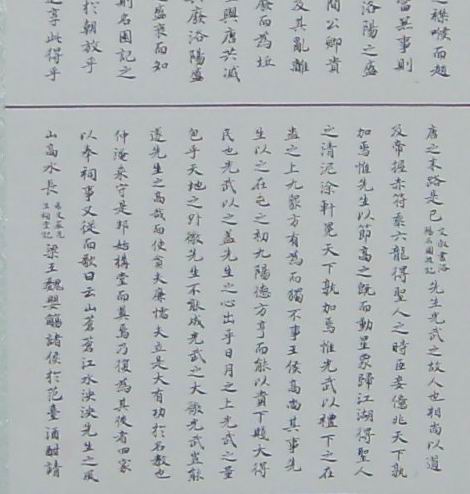 之襟喉而趙
當無事則
洛陽之盛
開公卿貴
及其亂離
廢而為丘
興唐共滅
廢洛陽盛
盛衰而知
則名園記之
於朝放乎
之享此得乎
唐之末路是已文叔書洛陽名園記先生光武之故人也相尚以道
及帝握赤符乘六龍得聖人之時臣妾億兆天下孰
加焉惟先生以節高之既而動星象歸江湖得聖人
之清泥塗軒冕天下孰加焉惟光武以禮下之在
蠱之上九眾方有為而獨不事王侯高尚其事先
生以之在屯之初九陽德方亨而能以貴下賤大得
民也光武以之蓋先生之心出乎日月之上光武之量
包乎天地之外微先生不能成光武之大微光武豈能
遂先生之高哉而使貪夫廉懦夫立是大有功於名教也
仲淹來守是邦始構堂而奠焉乃復為其後者四家
以奉祠事又從而歌曰云山蒼蒼江水泱泱先生之風
山高水長希文嚴先生祠堂記梁王魏嬰觴諸侯於范臺酒酣請